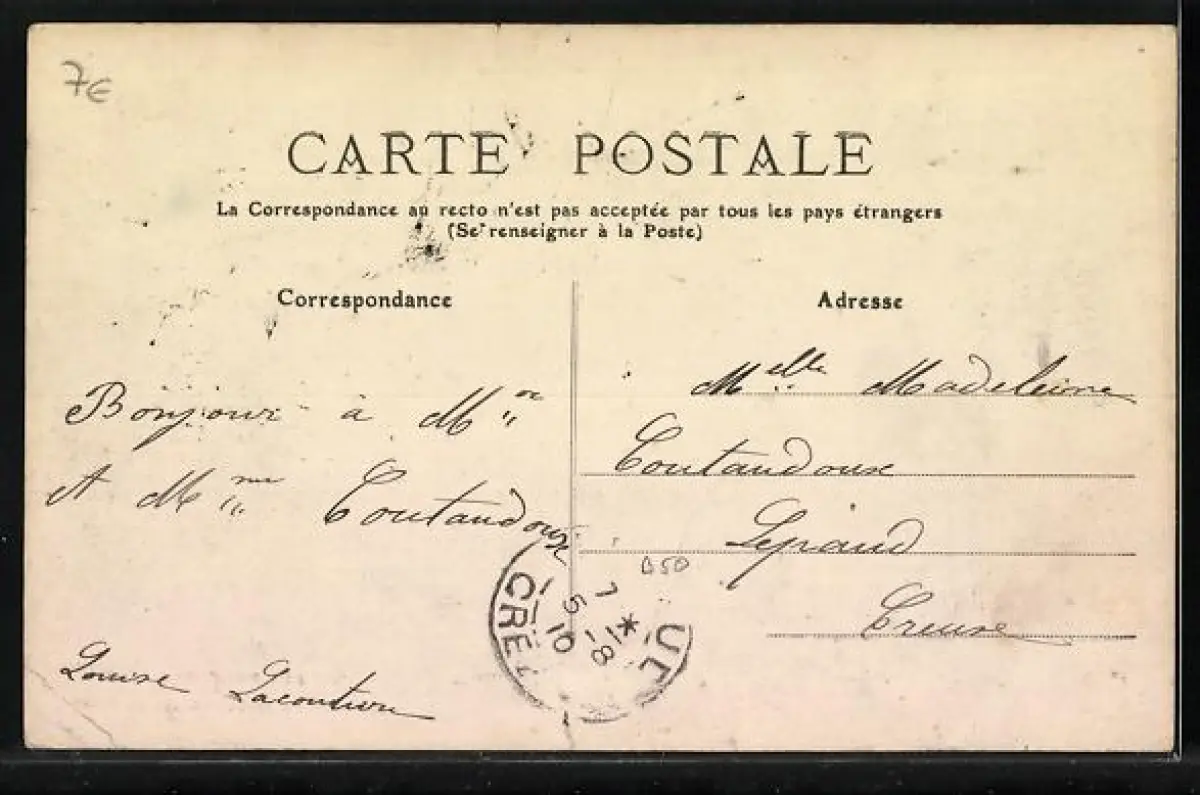 7€
CARTE POSTALE
La Correspondance au recto n'est pas acceptée par tous les pays étrangers
(Se renseigner à la Poste)
Correspondance
Adresse
Bonjour à Mr
A Mme Coutandoux
Louise
Melle Madeleine
Coutandoux
Lépaud
Creuse
050
7 * -8
5 10
CRE
UL